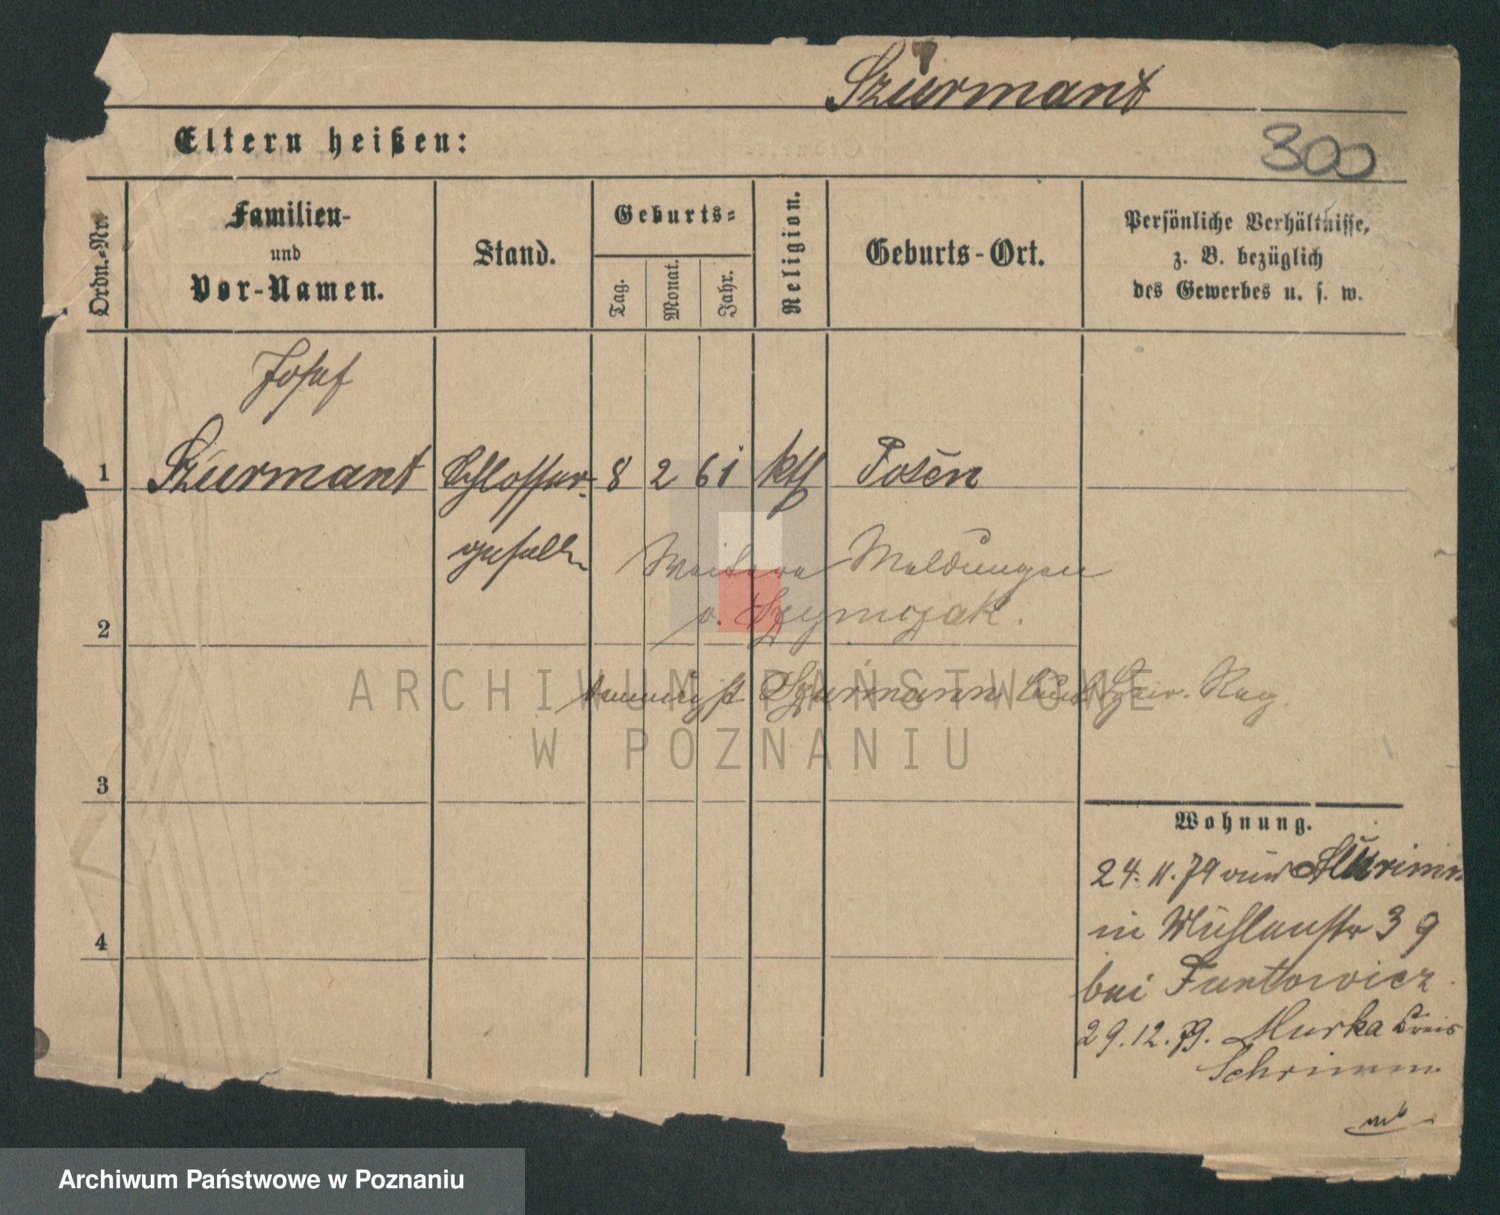 Szurmant
Eltern heißen:
300
Ordn.-Nr.
Familien-
und
Vor-Namen.
Stand.
Geburts-
Tag.
Monat.
Jahr.
Religion.
Geburts-Ort.
Persönliche Verhältnisse,
z. B. bezüglich
des Gewerbes u. s. w.
Josef
1 Szurmant Schlosser- 8 2 61 kth Posen
geselle
Weitere Meldungen
v. Szymczak.
2
Szurmann Reg.
ARCHIWUM PAŃSTWOWE
W POZNANIU
3
Wohnung.
24. 11. 79 aus
in Mühlenstr 39
4
bei
29. 12. 79. Murka Kreis
Schrimm
Archiwum Państwowe w Poznaniu